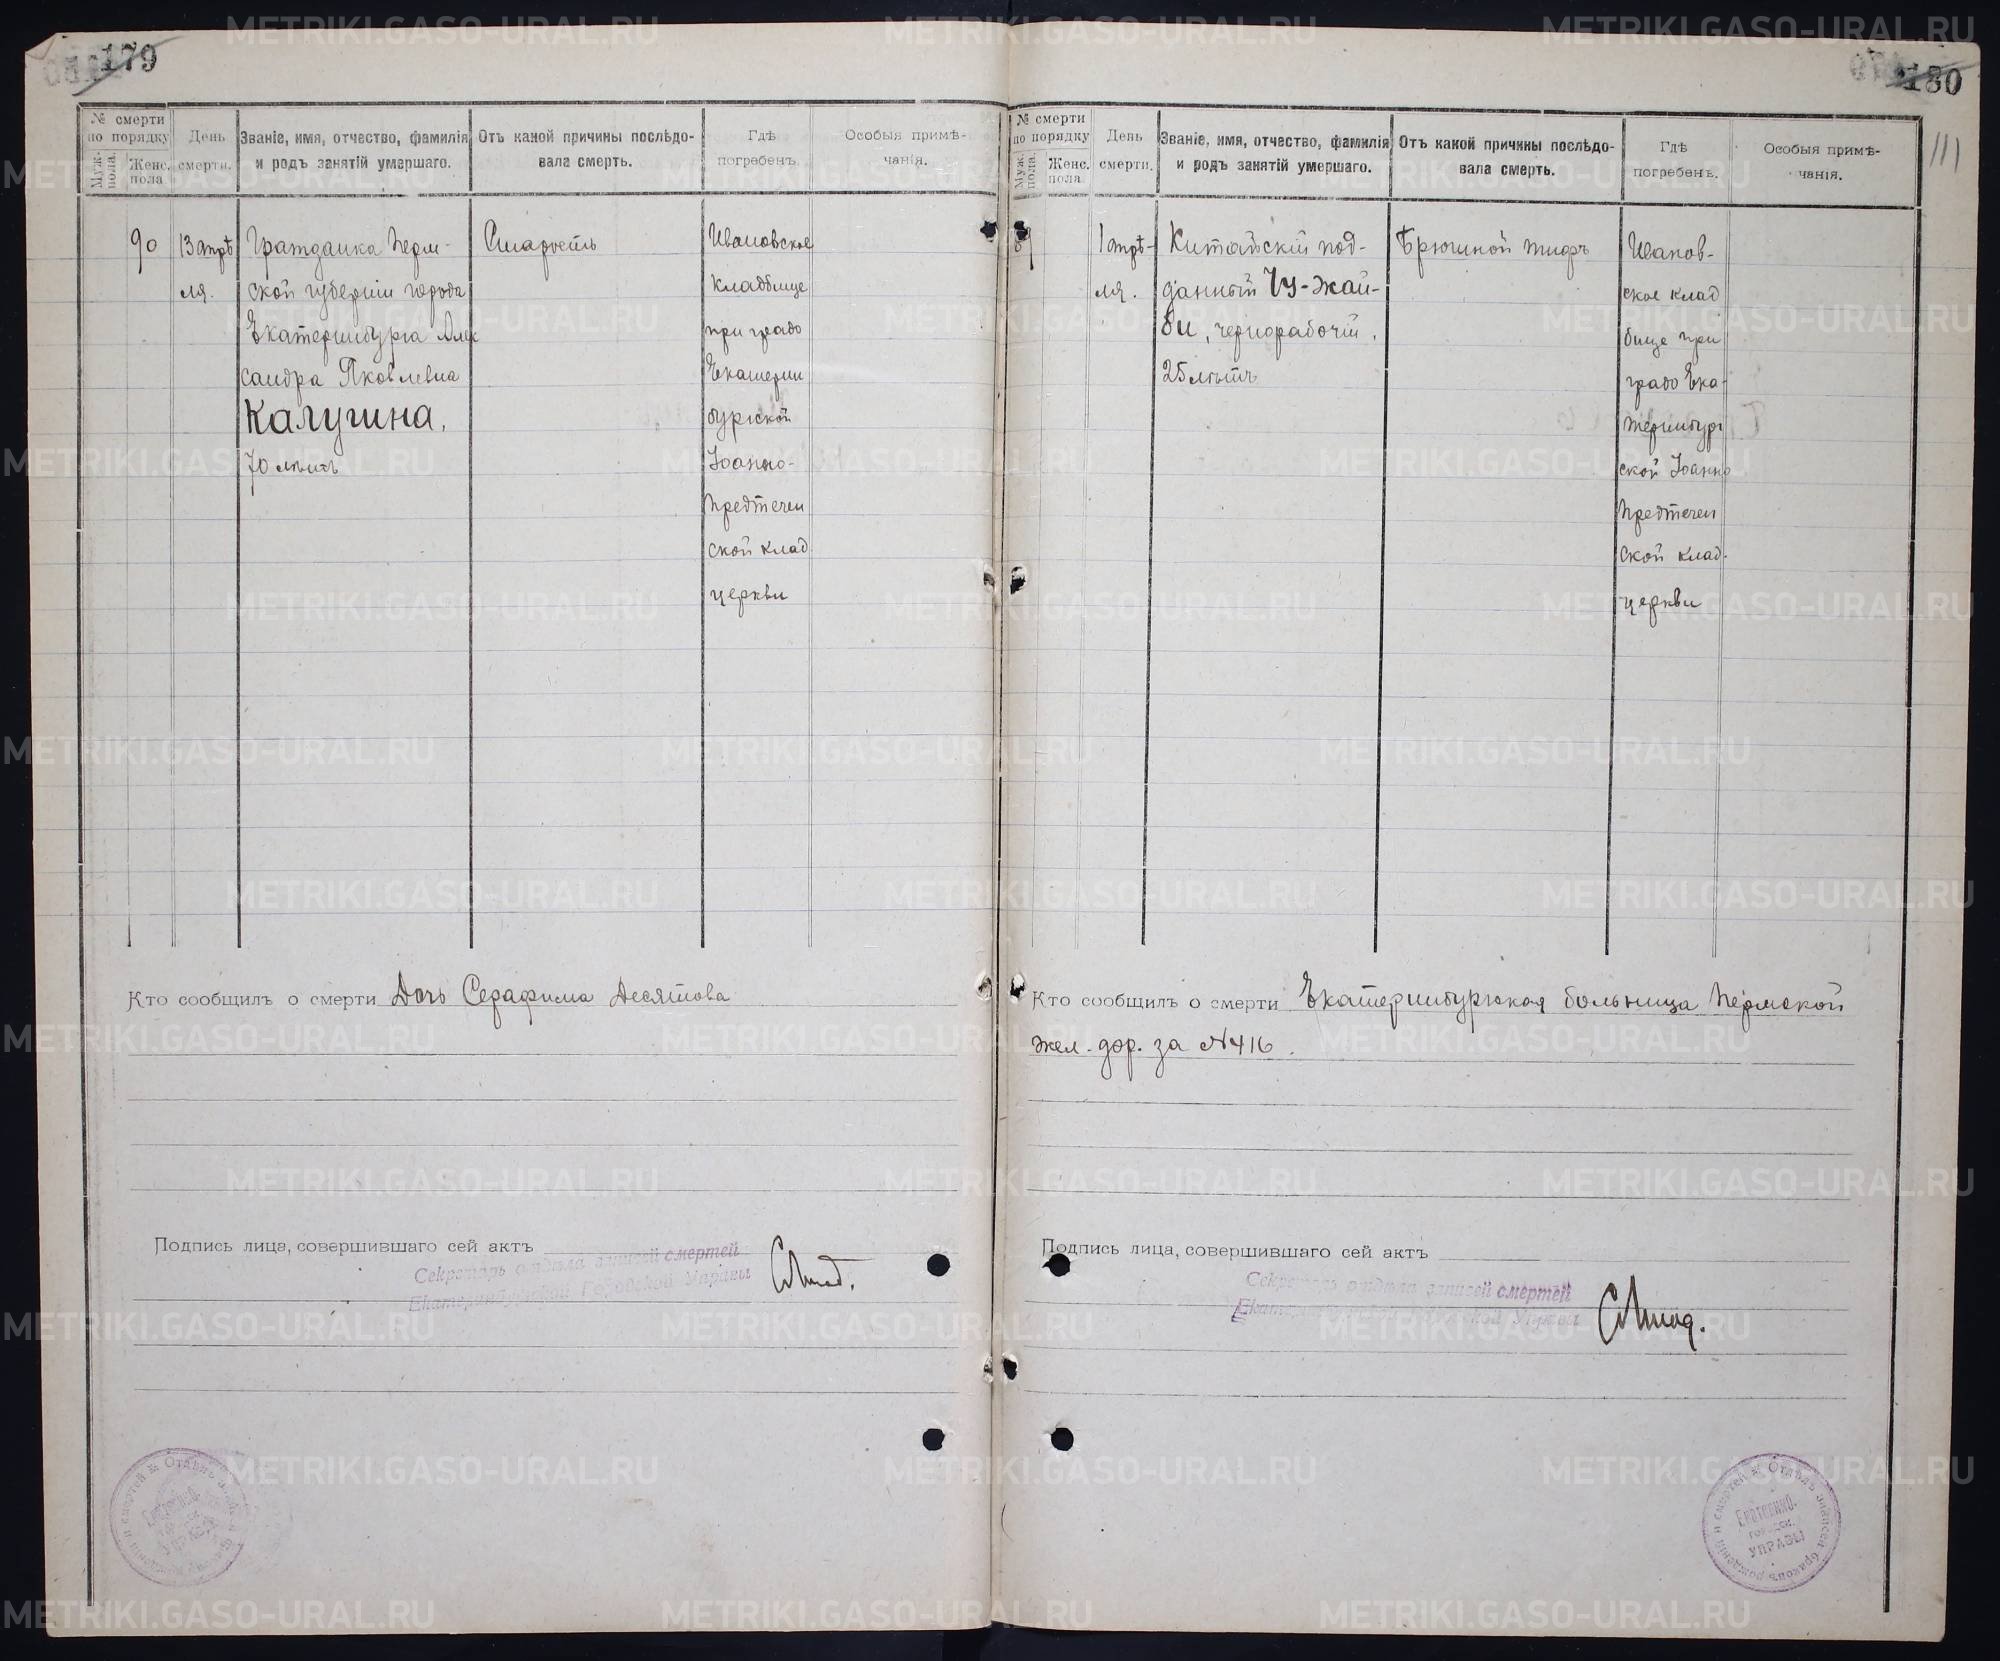 179
№ смерти по порядку
Муж. пола.
Женс. пола
День смерти.
Званіе, имя, отчество, фамилія и родъ занятій умершаго.
Отъ какой причины послѣдовала смерть.
Гдѣ погребенъ.
Особыя примѣчанія.
90
13 апрѣ
ля.
Гражданка Перм-
ской губерніи города
Екатеринбурга Алек
сандра Яковлевна
Калугина,
70 лѣтъ
Старость
Ивановское
кладбище
при градо
Екатерин
бургской
Іоанно-
Предтечен
ской клад.
церкви
Кто сообщилъ о смерти Дочь Серафима Десятова
Подпись лица, совершившаго сей актъ
Секретарь отдѣла записей смертей
Екатеринбургской Городской Управы
180
111
№ смерти по порядку
Муж. пола.
Женс. пола
День смерти.
Званіе, имя, отчество, фамилія и родъ занятій умершаго.
Отъ какой причины послѣдовала смерть.
Гдѣ погребенъ.
Особыя примѣчанія.
1 апрѣ-
ля.
Китайскій под-
данный Чу-жай-
ви, чернорабочій,
25 лѣтъ
Брюшной тифъ
Иванов-
ское клад
бище при
градо Ека-
теринбург
ской Іоанно
Предтечен
ской клад.
церкви
Кто сообщилъ о смерти Екатеринбургская больница Пермской
жел. дор. за №416.
Подпись лица, совершившаго сей актъ
Секретарь отдѣла записей смертей
Екатеринбургской Городской Управы
Отдѣлъ записей браковъ, рожденій и смертей
Екатеринб.
Городск.
УПРАВЫ
METRIKI.GASO-URAL.RU